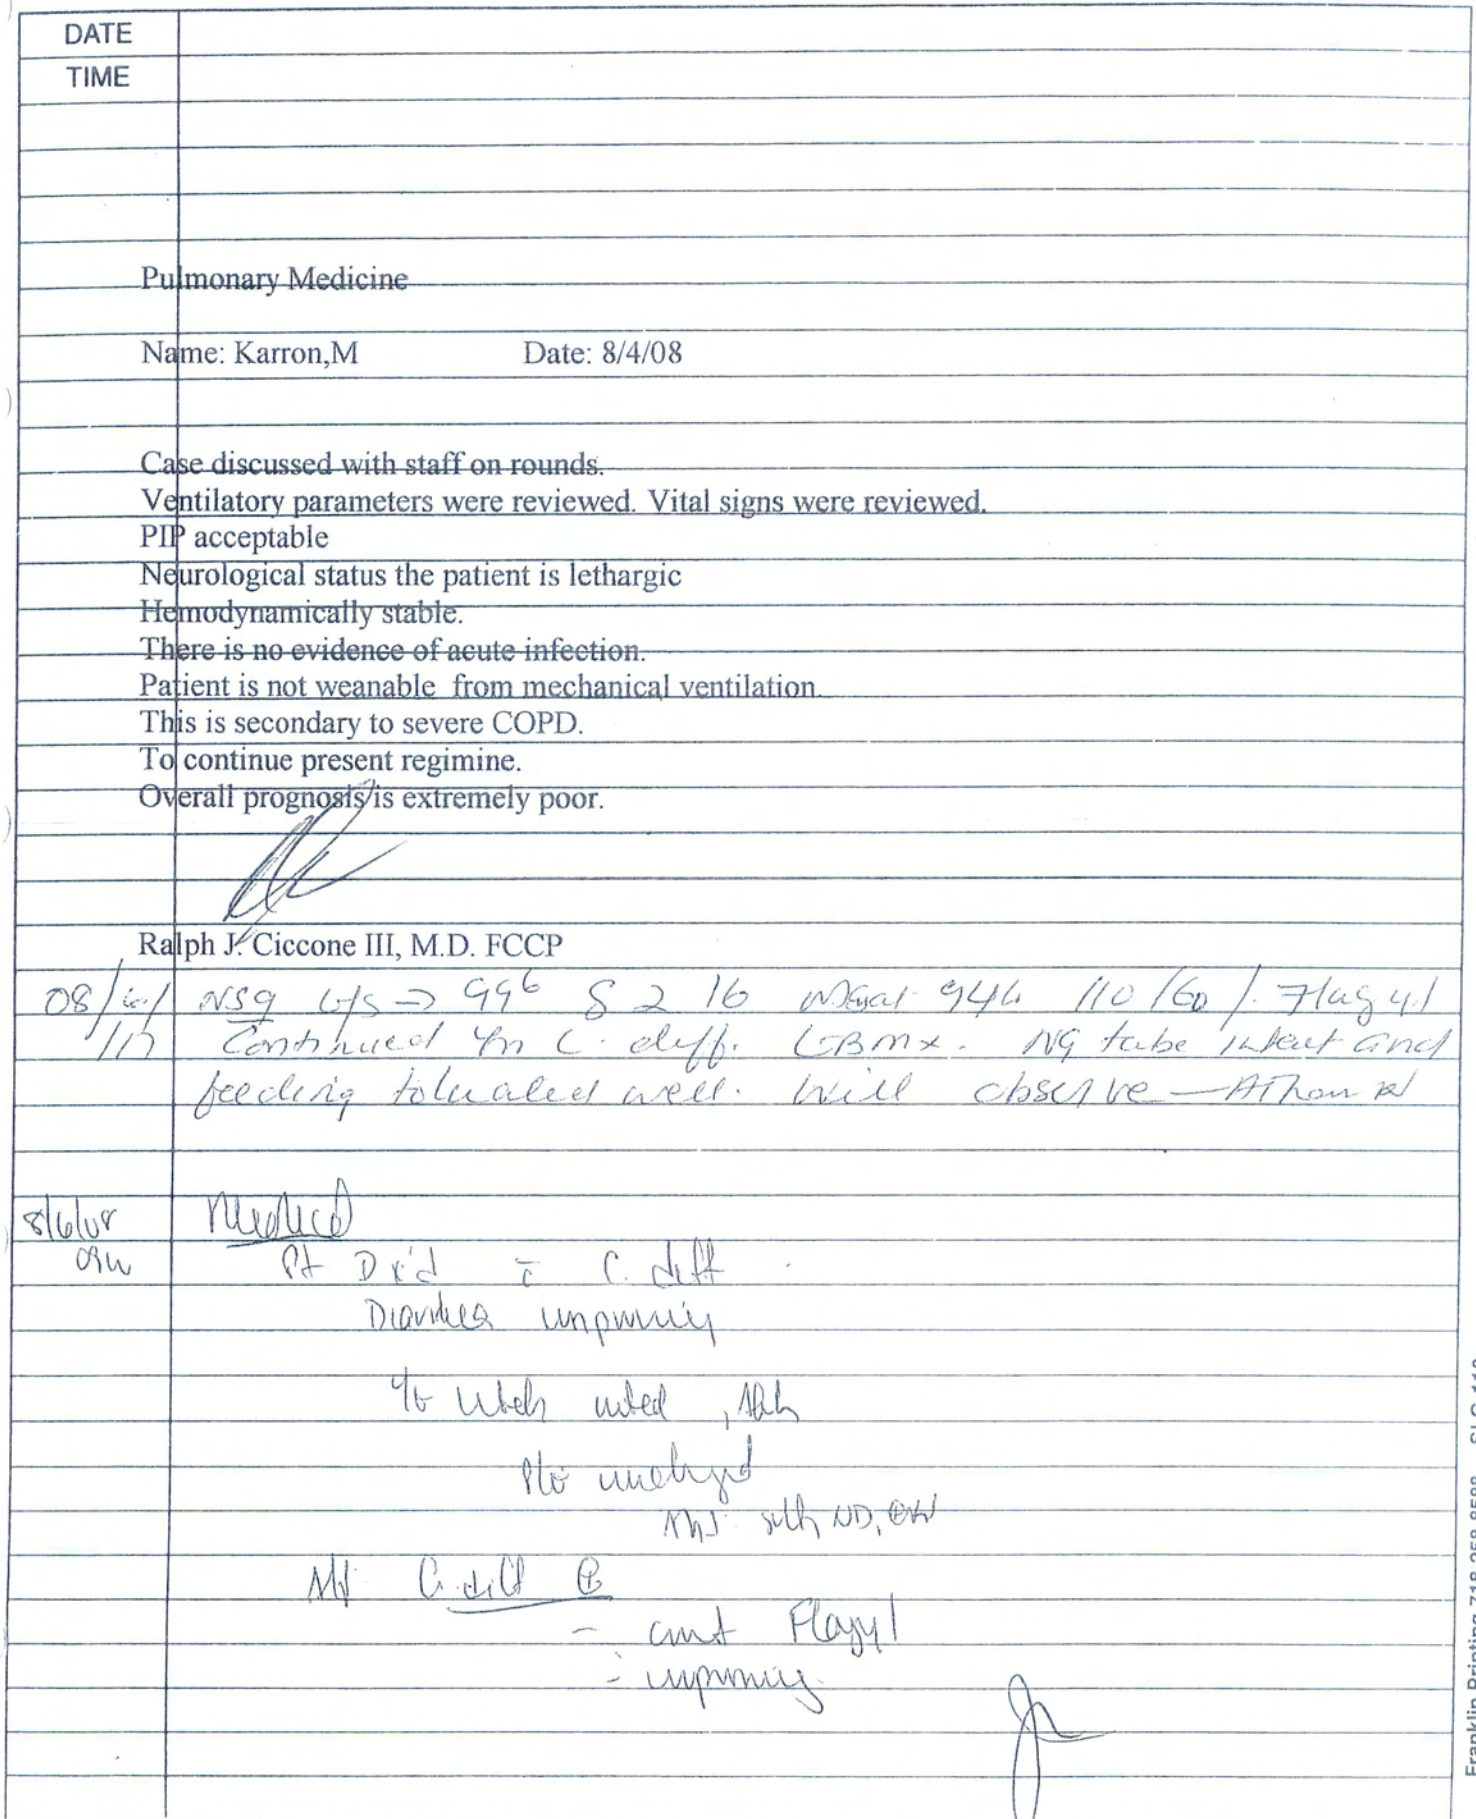 DATE
TIME
Pulmonary Medicine
Name: Karron,M Date: 8/4/08
Case discussed with staff on rounds.
Ventilatory parameters were reviewed. Vital signs were reviewed.
PIP acceptable
Neurological status the patient is lethargic
Hemodynamically stable.
There is no evidence of acute infection.
Patient is not weanable from mechanical ventilation.
This is secondary to severe COPD.
To continue present regimine.
Overall prognosis is extremely poor.
Ralph J. Ciccone III, M.D. FCCP
NSg V/S → 99⁶ 82 16 94% 110/60 Flagyl
Continued for C. diff. NG tube intact and
feeding tolerated well. Will observe
8/6/08 Medical
Pt Dx'd c̄ C. diff
Diarrhea improving
noted
C. diff ⊕
- cont Flagyl
- improving
Franklin Printing 718-258-8588 SLC 110